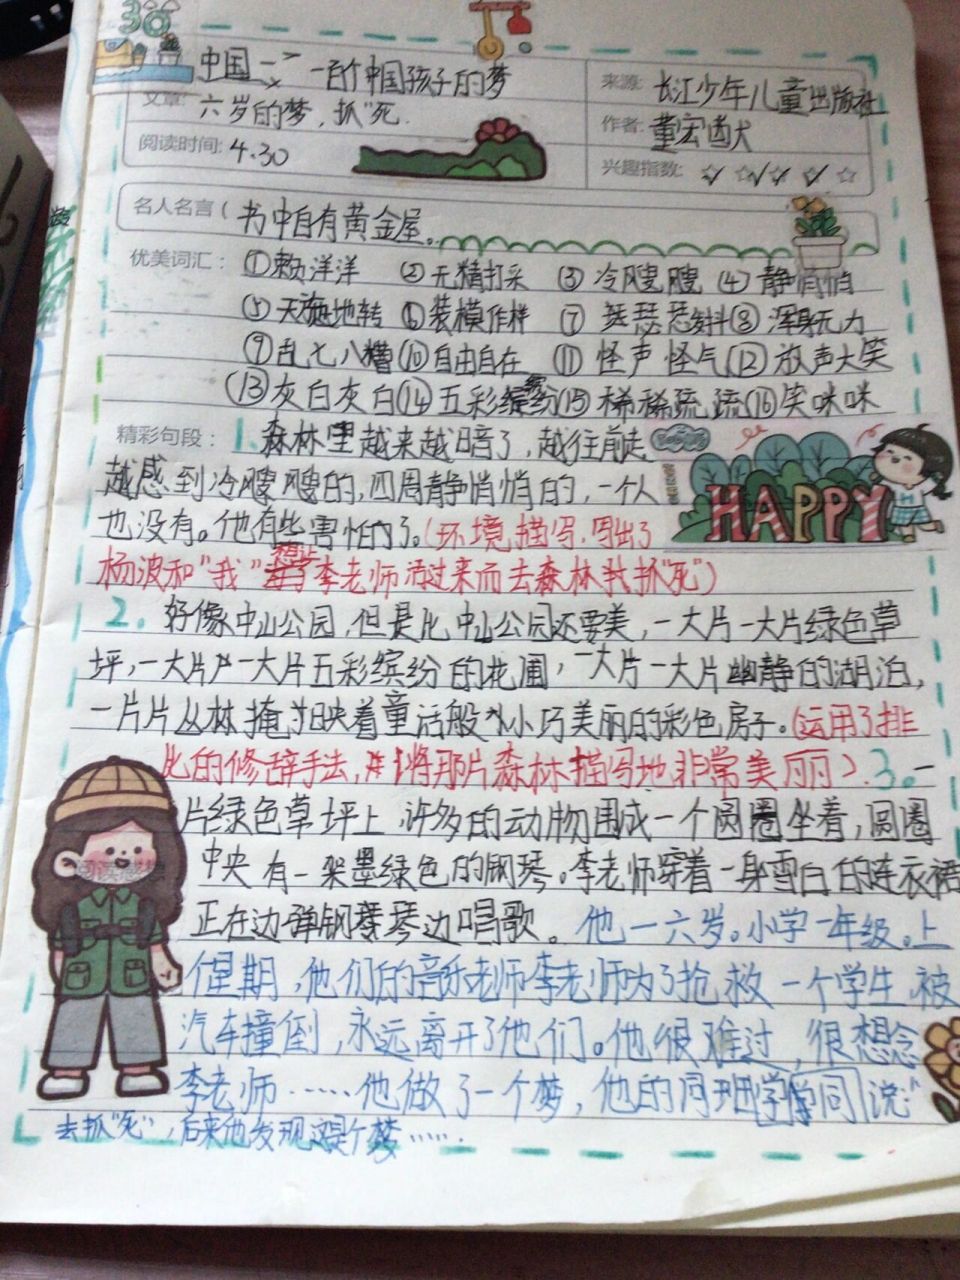 30
中国一个 一百个中国孩子的梦
文章:
六岁的梦，抓"死
阅读时间: 4.30
来源: 长江少年儿童出版社
作者: 董宏猷
兴趣指数: ☆ ☆ ☆ ☆ ☆
名人名言( 书中自有黄金屋。
优美词汇: ①懒洋洋 ②无精打采 ③冷飕飕 (4)静悄悄
⑤天旋地转 ⑥装模作样 ⑦瑟瑟发抖⑧浑身无力
⑨乱七八糟⑩自由自在 ⑪怪声怪气⑫放声大笑
(13)灰白灰白⑭五彩缤纷⑮稀稀疏疏⑯笑咪咪
精彩句段: 1.森林里越来越暗了，越往前走
越感到冷飕飕的,四周静悄悄的，一个人
也没有。他有些害怕了。(环境描写,写出了
HAPPY
杨波和"我"想让李老师活过来而去森林找抓"死")
2. 好像中山公园,但是比中山公园还要美,一大片一大片绿色草
坪,一大片一大片五彩缤纷的花圃，一大片一大片幽静的湖泊,
一片片丛林掩映着童话般小巧美丽的彩色房子。(运用了排
比的修辞手法,将那片森林描写地非常美丽). 3.一
片绿色草坪上,许多的动物围成一个圆圈坐着,圆圈
中央有一架墨绿色的钢琴。李老师穿着一身雪白的连衣裙
正在边弹钢琴边唱歌。他一六岁。小学一年级。上
个星期,他们的音乐老师李老师为了抢救一个学生,被
汽车撞倒,永远离开了他们。他很难过,很想念
李老师……他做了一个梦,他的同班同学说:"
去抓"死"，后来他发现这是个梦……